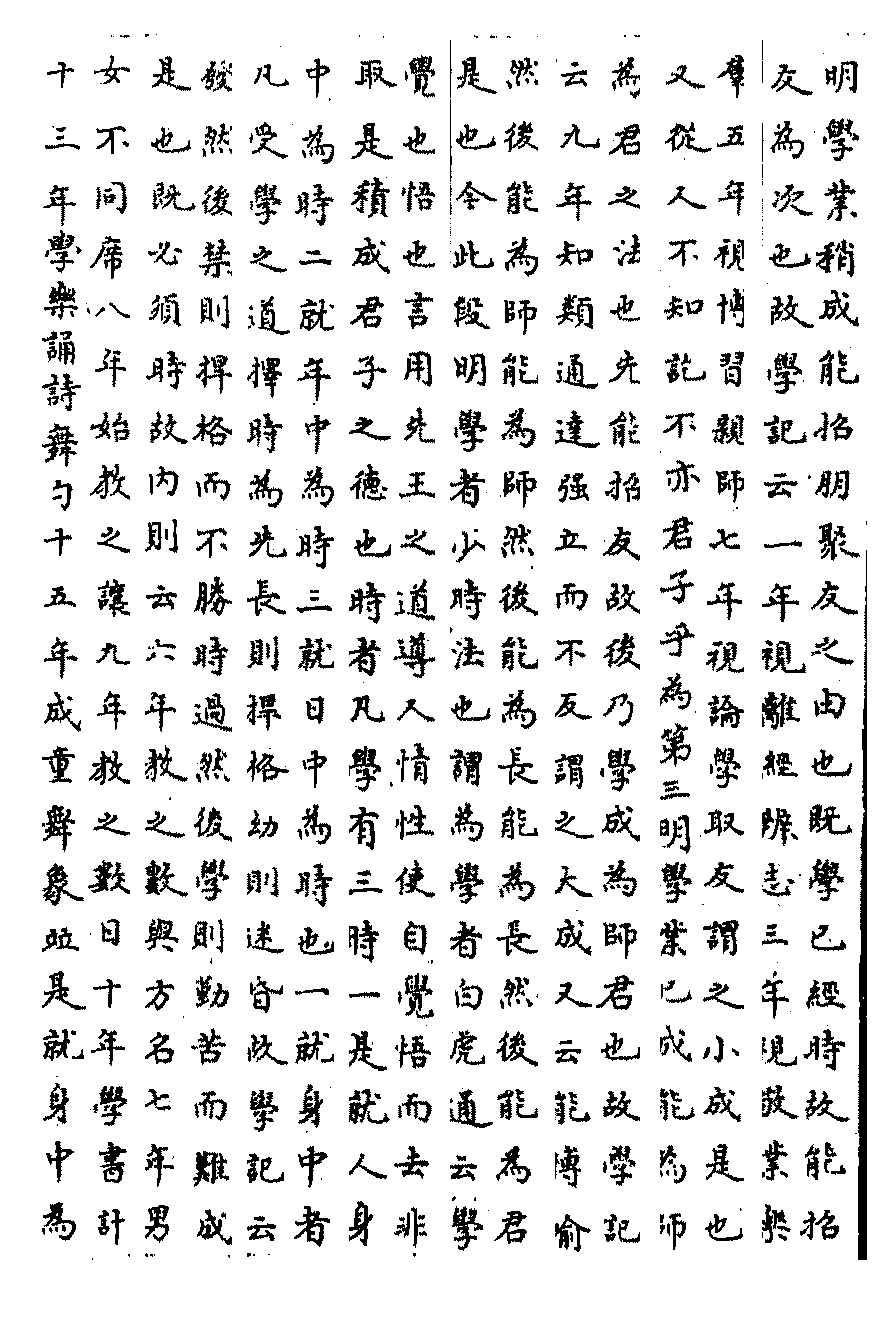 明學業稍成能招朋聚友之由也既學已經時故能招
友為次也故學記云一年視離經辨志三年視敬業樂
羣五年視博習親師七年視論學取友謂之小成是也
又從人不知訖不亦君子乎為第三明學業已成能為師
為君之法也先能招友故後乃學成為師君也故學記
云九年知類通達强立而不反謂之大成又云能博喻
然後能為師能為師然後能為長能為長然後能為君
是也今此段明學者少時法也謂為學者白虎通云學
覺也悟也言用先王之道導人情性使自覺悟而去非
取是積成君子之德也時者凡學有三時一是就人身
中為時二就年中為時三就日中為時也一就身中者
凡受學之道擇時為先長則捍格幼則迷昏故學記云
發然後禁則捍格而不勝時過然後學則勤苦而難成
是也既必須時故内則云六年教之數與方名七年男
女不同席八年始教之讓九年教之數日十年學書計
十三年學樂誦詩舞勺十五年成童舞象並是就身中為